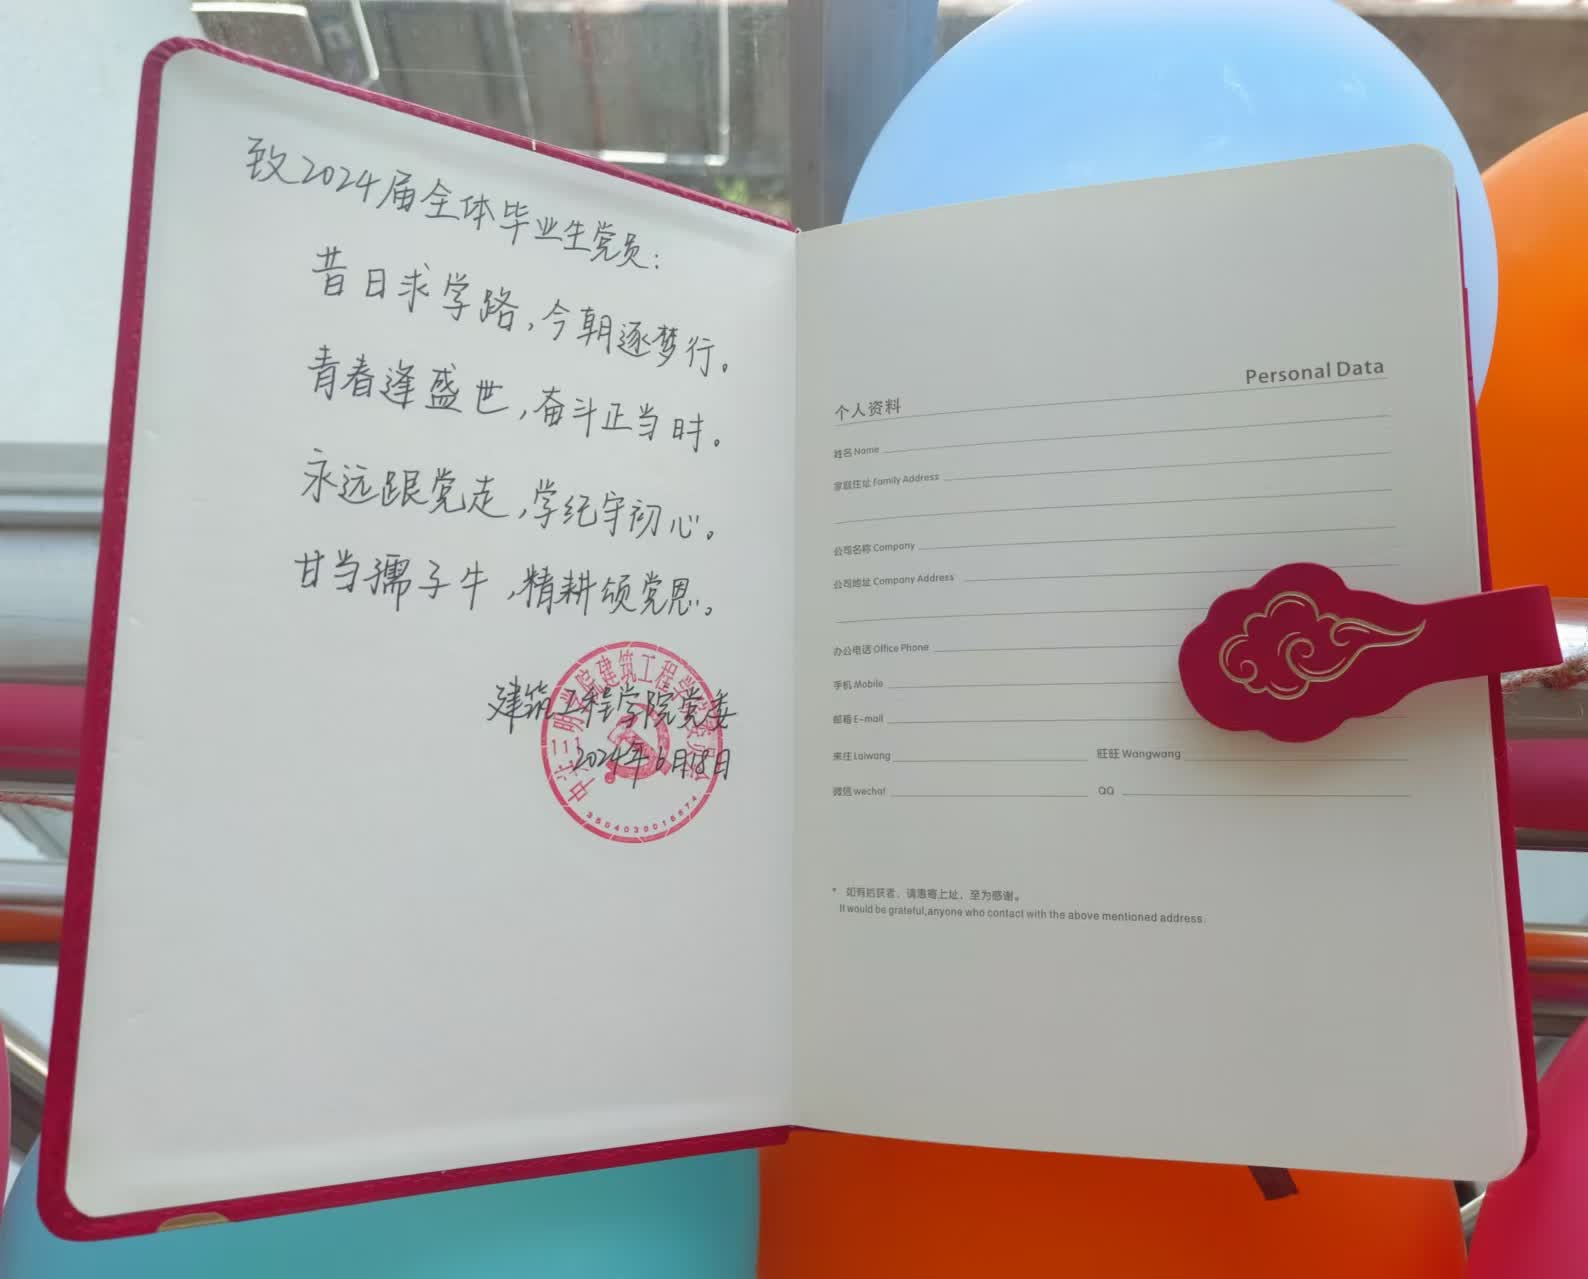 致2024届全体毕业生党员：
昔日求学路，今朝逐梦行。
青春逢盛世，奋斗正当时。
永远跟党走，学纪守初心。
甘当孺子牛，精耕颂党恩。
建筑工程学院党委
2024年6月18日
Personal Data
个人资料
姓名 Name
家庭住址 Family Address
公司名称 Company
公司地址 Company Address
办公电话 Office Phone
手机 Mobile
邮箱 E-mail
来往 Laiwang
旺旺 Wangwang
微信 wechat
QQ
* 如有拾获者，请惠寄上址，至为感谢。
It would be grateful,anyone who contact with the above mentioned address.